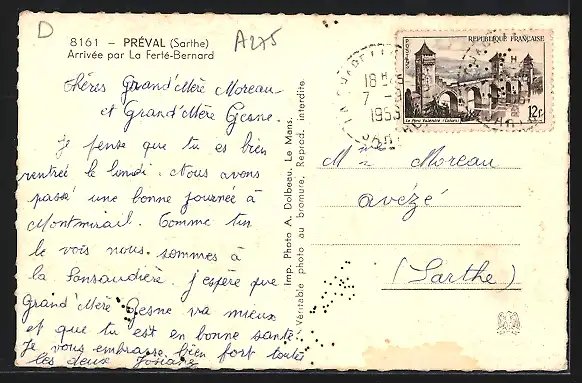 D
8161 - PRÉVAL (Sarthe)
Arrivée par La Ferté-Bernard
A275
Chères Grand'Mère Moreau
et Grand'Mère Gesne.
Je pense que tu es bien
rentrée le lundi. Nous avons
passé une bonne journée à
Montmirail. Comme tu
le vois nous sommes à
la Sansaudière. j'espère que
Grand'Mère Gesne va mieux
et que tu est en bonne santé.
Je vous embrasse bien fort toute
les deux
Imp. Photo A. Dolbeau, Le Mans.
Véritable photo au bromure. Reprod. interdite.
REPUBLIQUE FRANÇAISE
POSTES
12f.
Le Pont Valentré (Cahors)
18 H
7 -
SARTHE
Mme Moreau
avézé
(Sarthe)